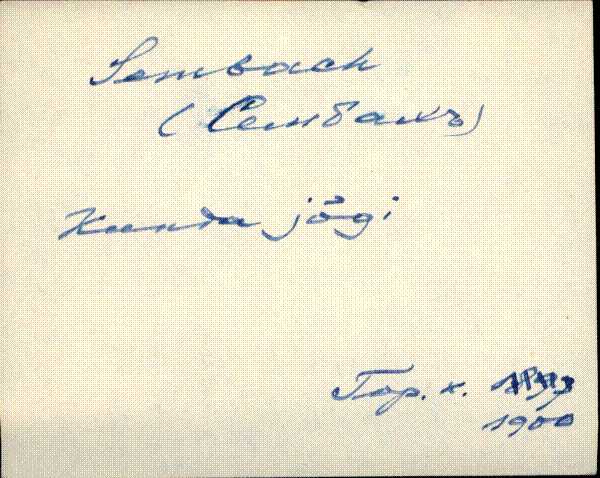 Sembach
(Сембахъ)
Kunda jõgi
Гор. к.
1900